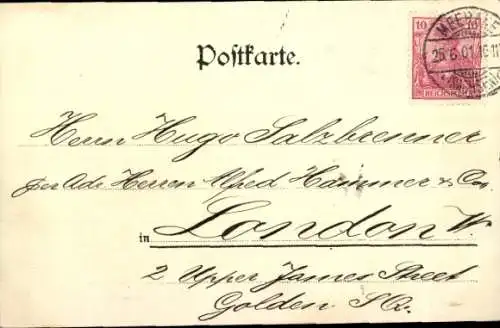 10 10
MEERANE
25.6.01.10-11
REICHSPOST
Postkarte.
Herrn Hugo Salzbrenner
per Adr. Herren Alfred Hammer & Co,
in London W
2 Upper James Street
Golden SQ.